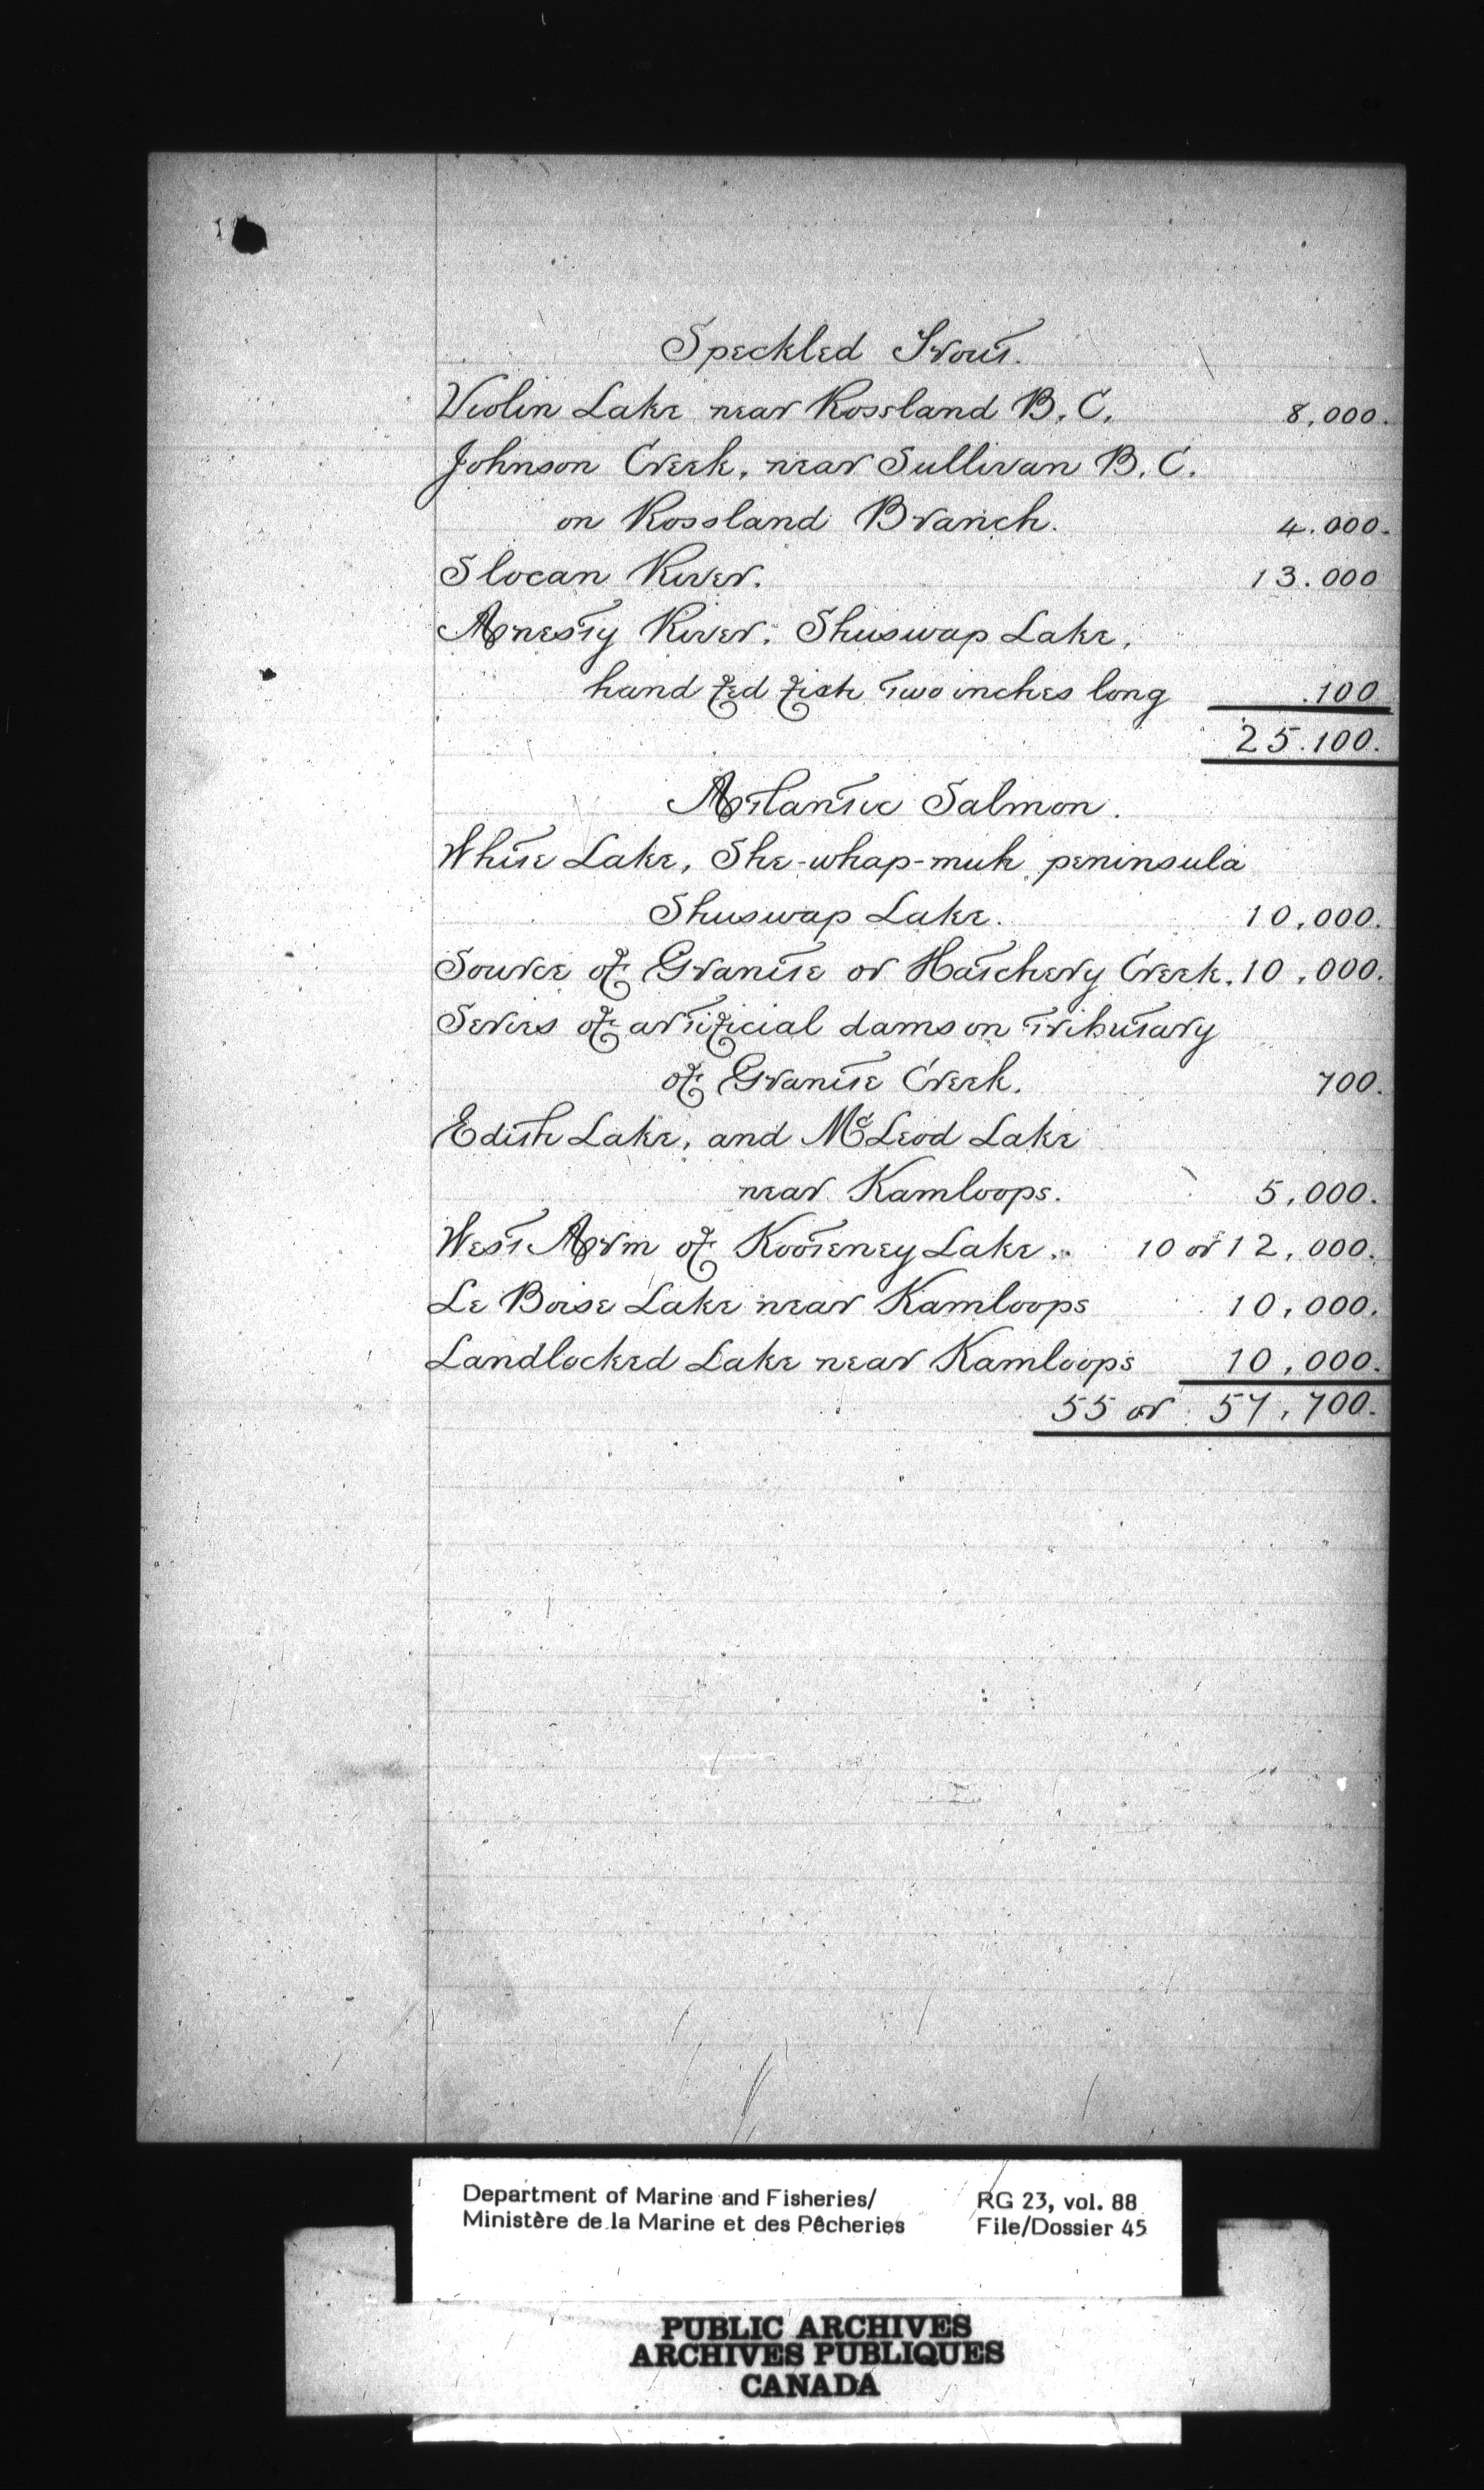 Speckled Trout.
Violin Lake near Rossland B.C. 8,000.
Johnson Creek, near Sullivan B.C.
on Rossland Branch. 4.000.
Slocan River. 13.000
Anesty River. Shuswap Lake,
hand fed fish two inches long .100
25.100.
Atlantic Salmon.
White Lake, She-whap-muk peninsula
Shuswap Lake. 10,000.
Source of Granite or Hatchery Creek. 10,000.
Series of artificial dams on tributary
of Granite Creek. 700.
Edith Lake, and McLeod Lake
near Kamloops. 5,000.
West Arm of Kooteney Lake. 10 or 12,000.
Le Boise Lake near Kamloops 10,000.
Landlocked Lake near Kamloops 10,000.
55 or 57,700.
Department of Marine and Fisheries/ RG 23, vol. 88
Ministère de la Marine et des Pêcheries File/Dossier 45
PUBLIC ARCHIVES
ARCHIVES PUBLIQUES
CANADA